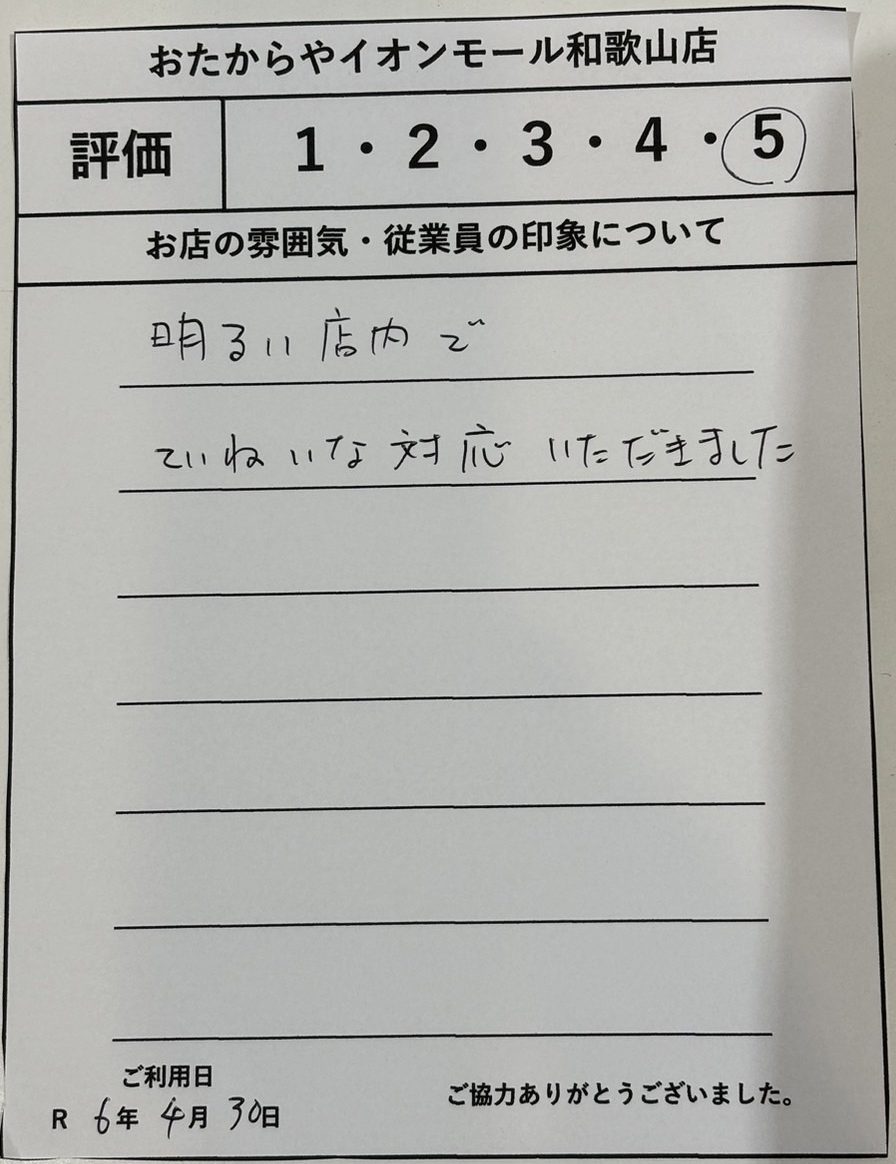 おたからやイオンモール和歌山店
評価 1・2・3・4・5
お店の雰囲気・従業員の印象について
明るい店内で
ていねいな対応いただきました
ご利用日
R 6年 4月 30日
ご協力ありがとうございました。